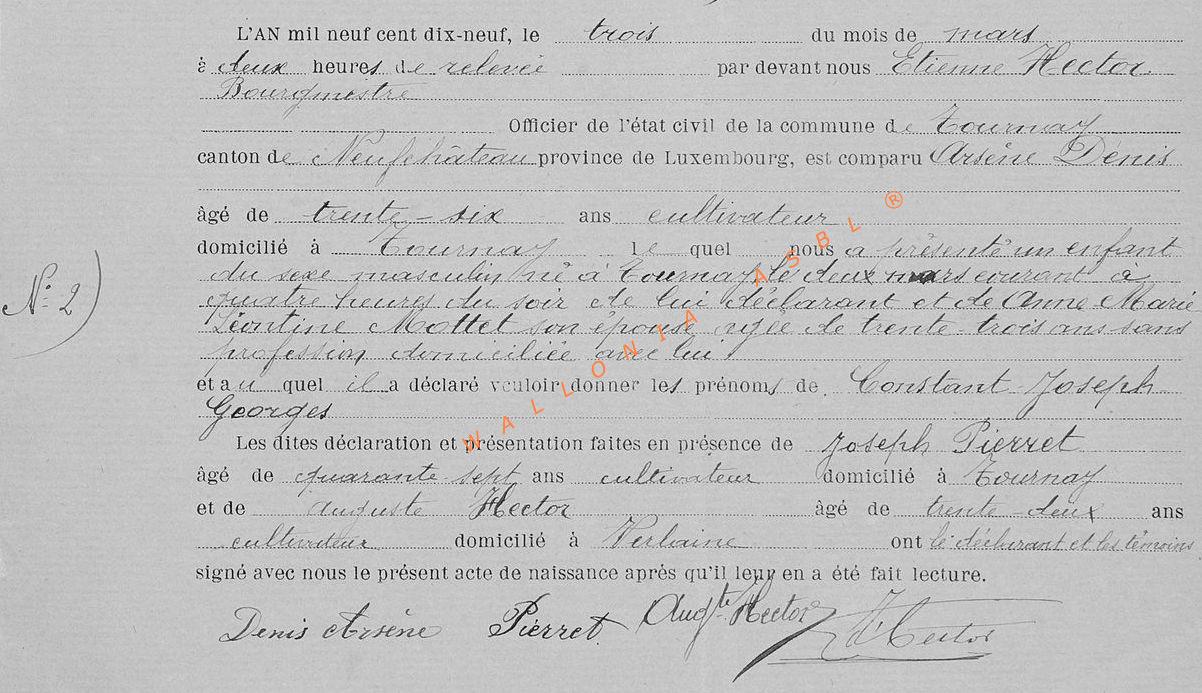 L'AN mil neuf cent dix-neuf, le trois du mois de mars
à deux heures de relevée par devant nous Etienne Hector
Bourgmestre
Officier de l'état civil de la commune de Tournay
canton de Neufchâteau province de Luxembourg, est comparu Arsène Denis
âgé de trente-six ans cultivateur
domicilié à Tournay le quel nous a présenté un enfant
du sexe masculin, né à Tournay le deux mars courant à
quatre heures du soir de lui déclarant et de Anne Marie
Léontine Mottet son épouse agée de trente-trois ans sans
profession domiciliée avec lui
N° 2)
et au quel il a déclaré vouloir donner les prénoms de Constant Joseph
Georges
Les dites déclaration et présentation faites en présence de Joseph Pierret
âgé de quarante-sept ans cultivateur domicilié à Tournay
et de Auguste Hector âgé de trente-deux ans
cultivateur domicilié à Verlaine ont le déclarant et les témoins
signé avec nous le présent acte de naissance après qu'il leur en a été fait lecture.
Denis Arsène Pierret Augte Hector Hector
WALLONIA ASBL ®